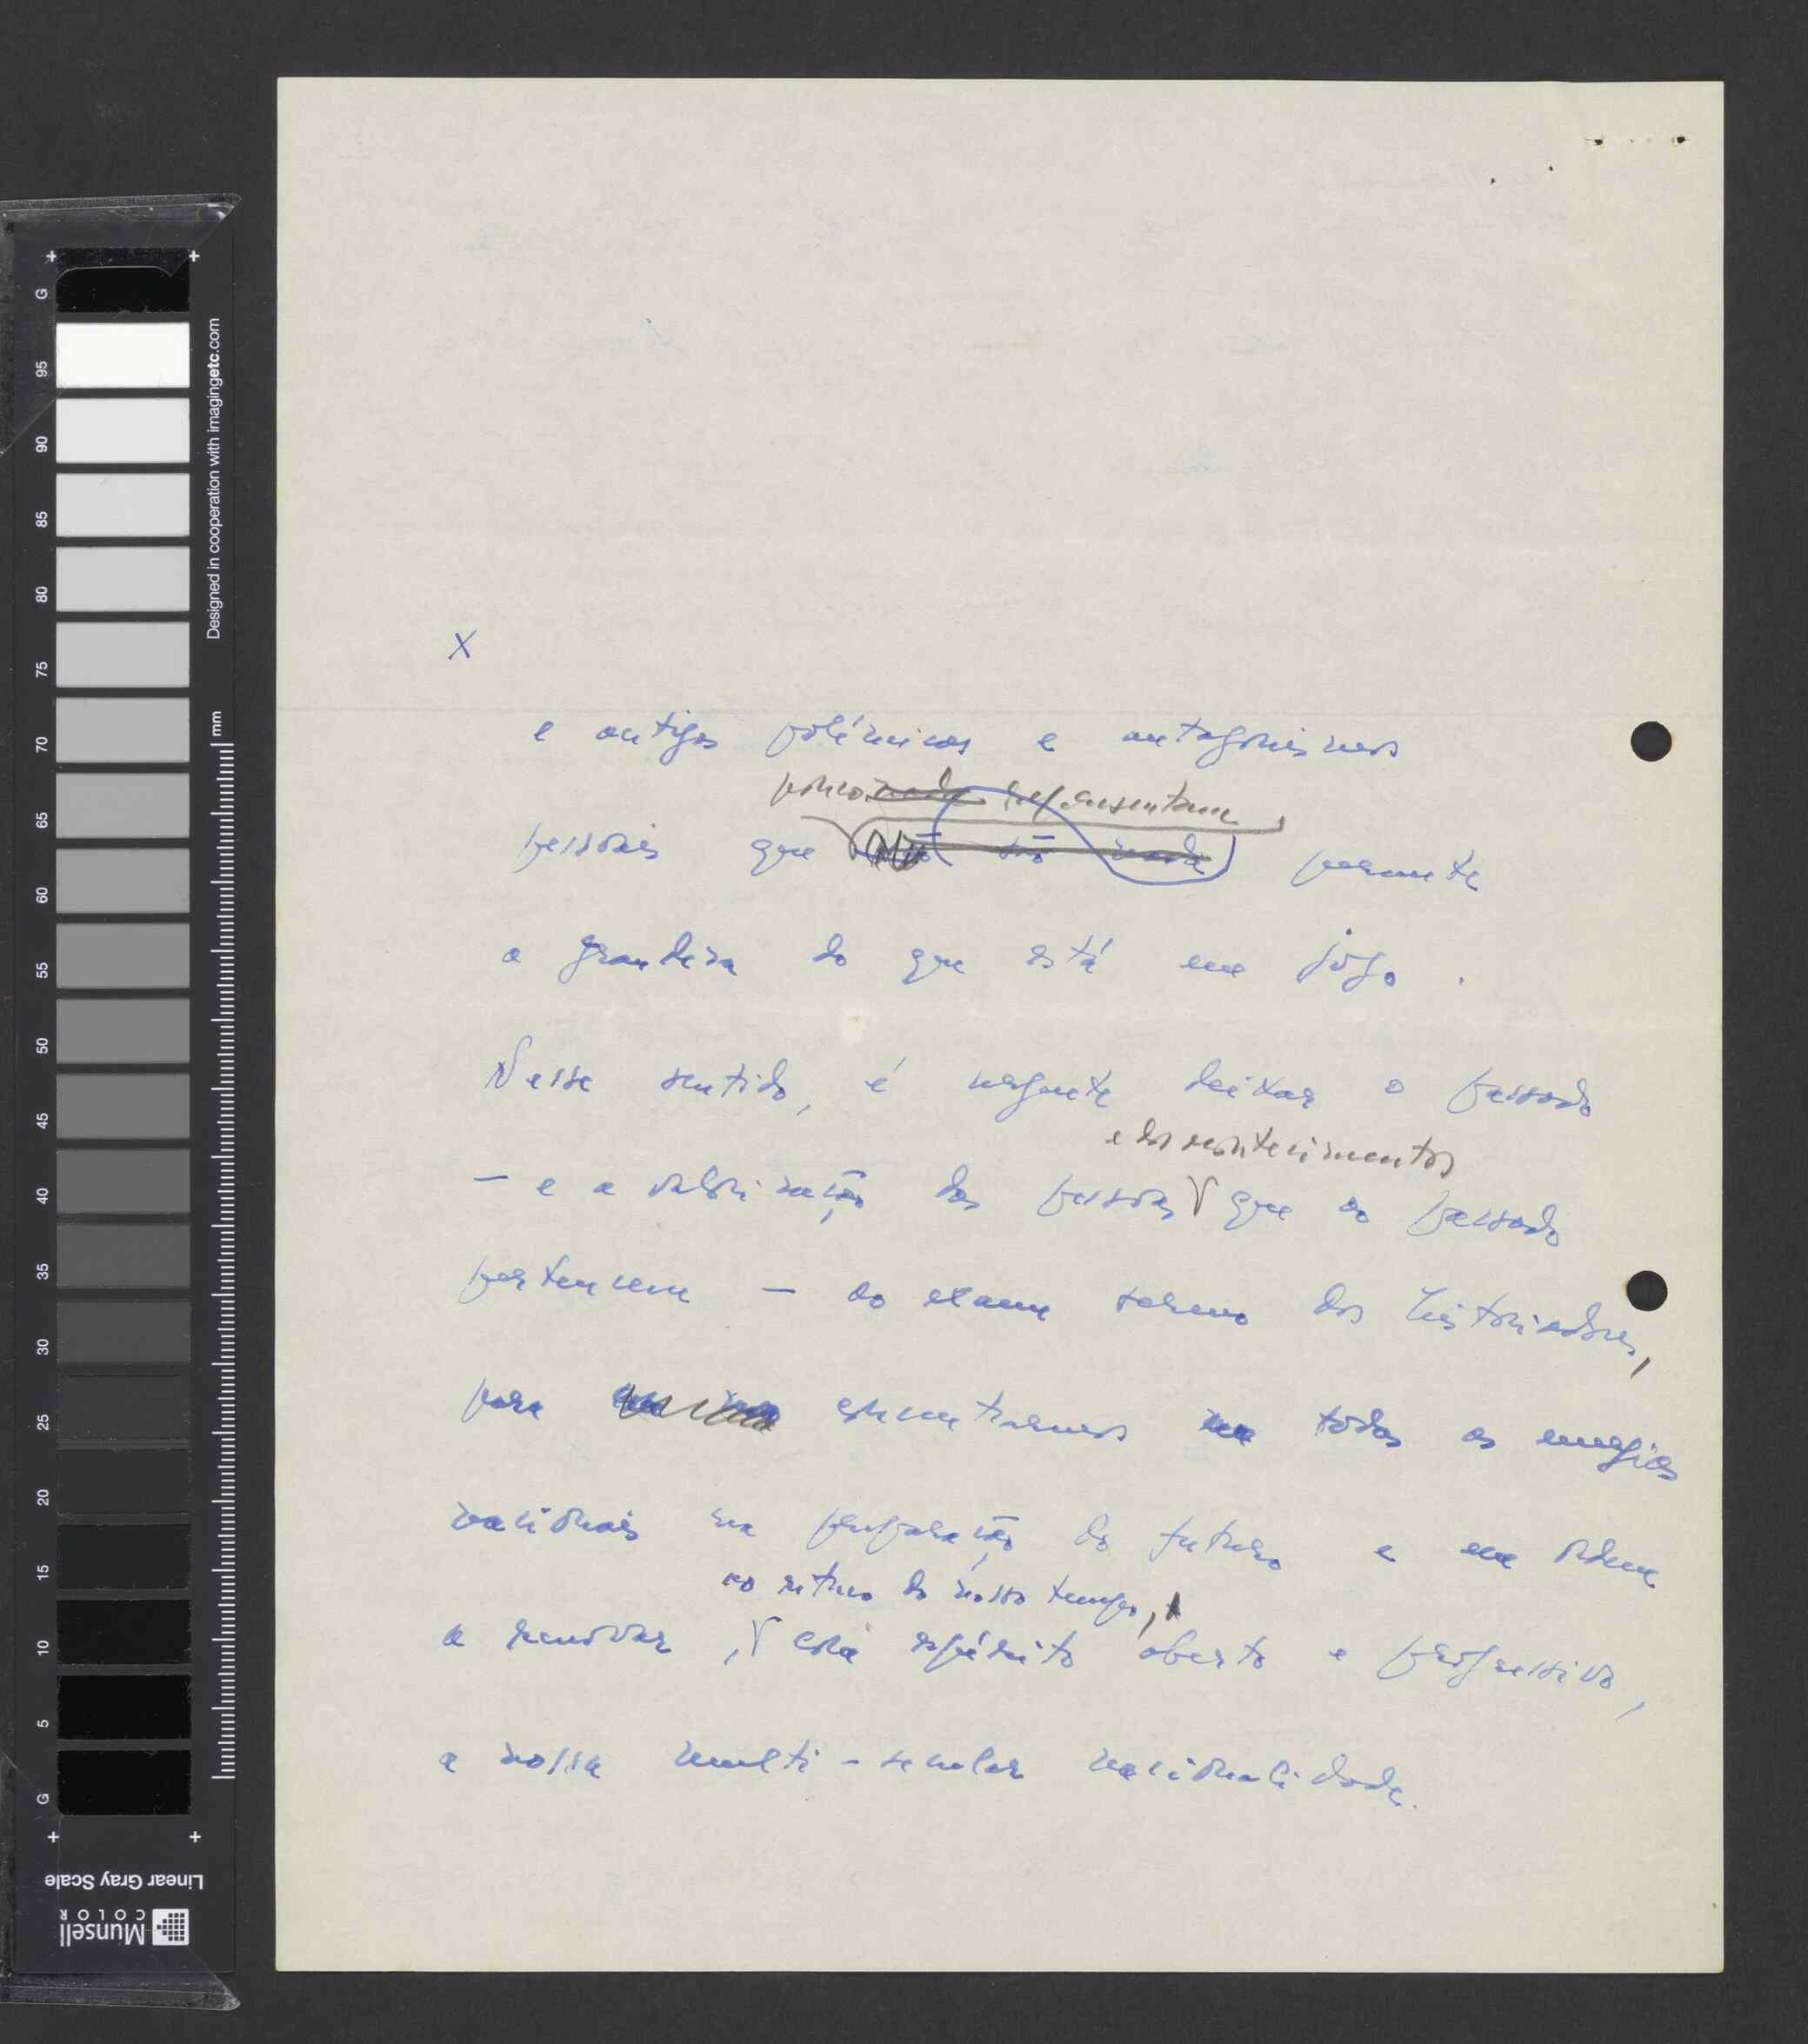 X
e antigas polémicas e antagonismos
pouco nada representam
pessoais que não são nada perante
a grandeza do que está em jogo.
Nesse sentido, é urgente deixar o passado
e dos acontecimentos
— e a valorização das pessoas que ao passado
pertencem — ao exame sereno dos historiadores,
para concentrarmos todas as energias
nacionais na preparação do futuro e em ordem
ao ritmo do nosso tempo,
a renovar, com espírito aberto e progressivo,
a nossa multi-secular nacionalidade.
G
95
90
85
80
75
70
65
60
55
50
45
40
35
30
25
20
15
10
5
G
Designed in cooperation with imagingetc.com
mm
Linear Gray Scale
Munsell
COLOR